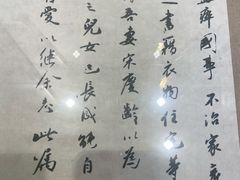 盡瘁國事不治家產
之書籍衣物住宅等
吾妻宋慶齡以為
之兒女已長成能自
自愛以繼余志此屬